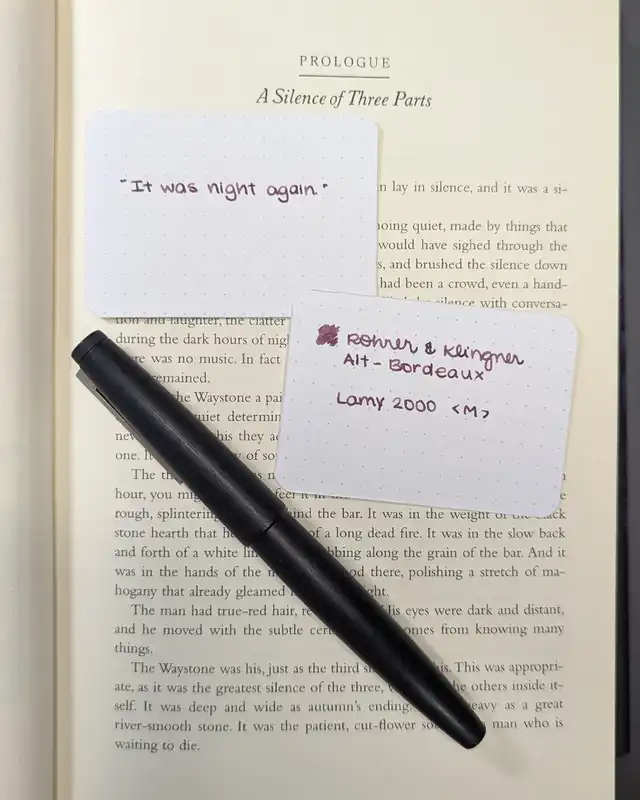 PROLOGUE
A Silence of Three Parts
"It was night again."
Rohrer & Klingner
Alt-Bordeaux
Lamy 2000 <M>
lay in silence, and it was a si-
quiet, made by things that
would have sighed through the
and brushed the silence down
had been a crowd, even a hand-
silence with conversa-
tion and laughter, the clatter
during the dark hours of
was no music. In fact
remained.
the Waystone a
determin
this they
one. It of
The
hour, you feel it in
rough, splintering the bar. It was in the weight of the black
stone hearth that of a long dead fire. It was in the slow back
and forth of a white along the grain of the bar. And it
was in the hands of the there, polishing a stretch of ma-
hogany that already gleamed
The man had true-red hair, His eyes were dark and distant,
and he moved with the subtle comes from knowing many
things.
The Waystone was his, just as the third This was appropri-
ate, as it was the greatest silence of the three, others inside it-
self. It was deep and wide as autumn's ending. heavy as a great
river-smooth stone. It was the patient, cut-flower man who is
waiting to die.